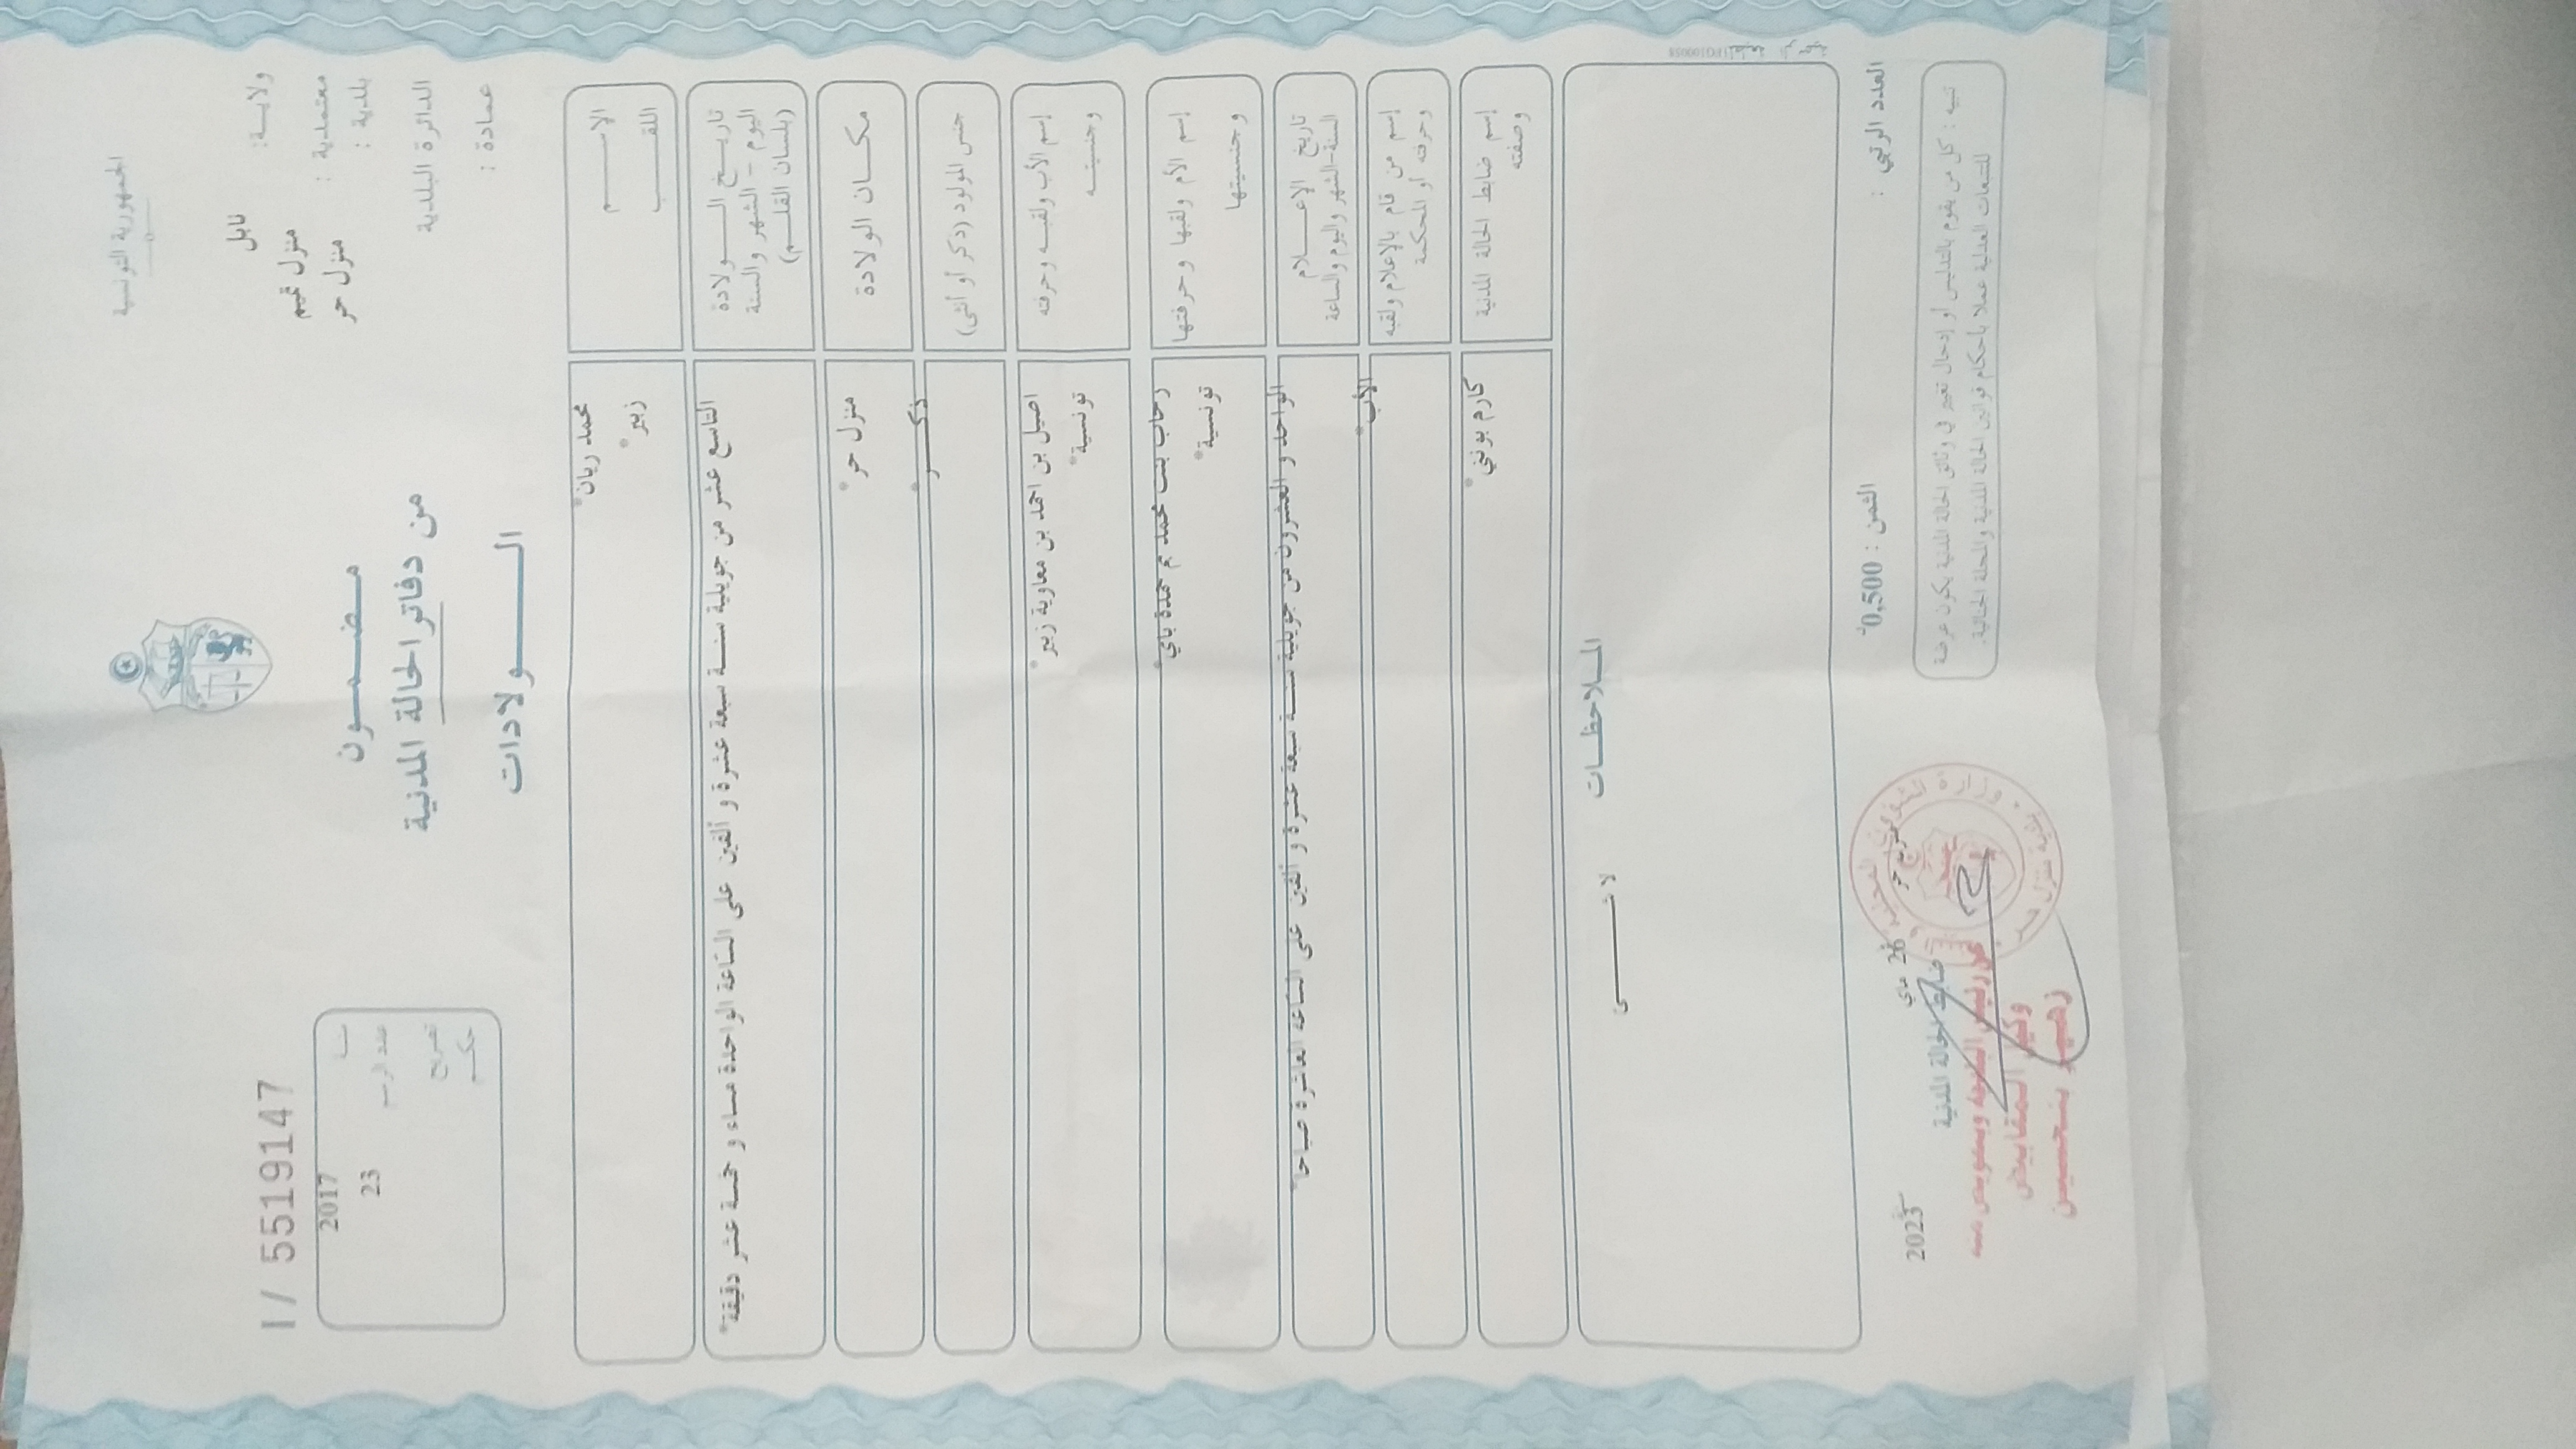 الجمهورية التونسية
I / 5519147
ولاية: نابل
معتمدية : منزل تميم
بلدية : منزل حر
الدائرة البلدية
عمادة :
مضمون
من دفاتر الحالة المدنية
الولادات
2017
عدد الرسم 23
تصريح
حكم
الإسم محمد ريان*
اللقب زبير*
تاريخ الولادة
اليوم - الشهر والسنة
(بلسان القلم)
التاسع عشر من جويلية سنة سبعة عشرة و ألفين على الساعة الواحدة مساء و خمسة عشر دقيقة*
مكان الولادة منزل حر*
جنس المولود (ذكر أو أنثى) ذكر*
إسم الأب ولقبه وحرفته اصيل بن احمد بن معاوية زبير*
وجنسيته تونسية*
إسم الأم ولقبها وحرفتها رحاب بنت محمد بم حمدة باي*
وجنسيتها تونسية*
تاريخ الإعلام
السنة-الشهر واليوم والساعة
الواحد و العشرون من جويلية سنة سبعة عشرة و ألفين على الساعة العاشرة صباحا*
إسم من قام بالإعلام ولقبه
وحرفته أو المحكمة
الأب*
إسم ضابط الحالة المدنية
وصفته
كارم بوثني*
الملاحظات
لا شيء
العدد الرتبي :
الثمن : 0,500د
منزل حر في 26 ماي 2023
ضابط الحالة المدنية
عن رئيس البلدية وبتفويض منه
وكيل المقابيض
زهير بنحسين
تنبيه : كل من يقوم بالتدليس أو إدخال تغيير في وثائق الحالة المدنية يكون عرضة
للتتبعات العدلية عملا بأحكام قوانين الحالة المدنية والمجلة الجنائية.